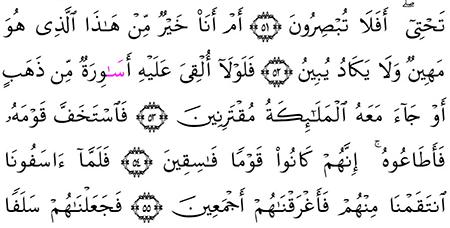 تَحْتِىٓ ۖ أَفَلَا تُبْصِرُونَ ۝٥١ أَمْ أَنَا۠ خَيْرٌ مِّنْ هَـٰذَا ٱلَّذِى هُوَ
مَهِينٌ وَلَا يَكَادُ يُبِينُ ۝٥٢ فَلَوْلَآ أُلْقِىَ عَلَيْهِ أَسَـٰوِرَةٌ مِّن ذَهَبٍ
أَوْ جَآءَ مَعَهُ ٱلْمَلَـٰٓئِكَةُ مُقْتَرِنِينَ ۝٥٣ فَٱسْتَخَفَّ قَوْمَهُۥ
فَأَطَاعُوهُ ۚ إِنَّهُمْ كَانُوا۟ قَوْمًا فَـٰسِقِينَ ۝٥٤ فَلَمَّآ ءَاسَفُونَا
ٱنتَقَمْنَا مِنْهُمْ فَأَغْرَقْنَـٰهُمْ أَجْمَعِينَ ۝٥٥ فَجَعَلْنَـٰهُمْ سَلَفًا